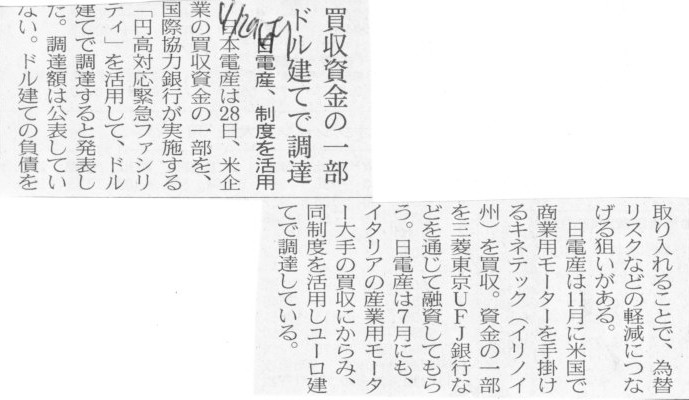 買収資金の一部
ドル建てで調達
日電産、制度を活用
日本電産は28日、米企
業の買収資金の一部を、
国際協力銀行が実施する
「円高対応緊急ファシリ
ティ」を活用して、ドル
建てで調達すると発表し
た。調達額は公表してい
ない。ドル建ての負債を
取り入れることで、為替
リスクなどの軽減につな
げる狙いがある。
日電産は11月に米国で
商業用モーターを手掛け
るキネテック（イリノイ
州）を買収。資金の一部
を三菱東京UFJ銀行な
どを通じて融資してもら
う。日電産は7月にも、
イタリアの産業用モータ
ー大手の買収にからみ、
同制度を活用しユーロ建
てで調達している。